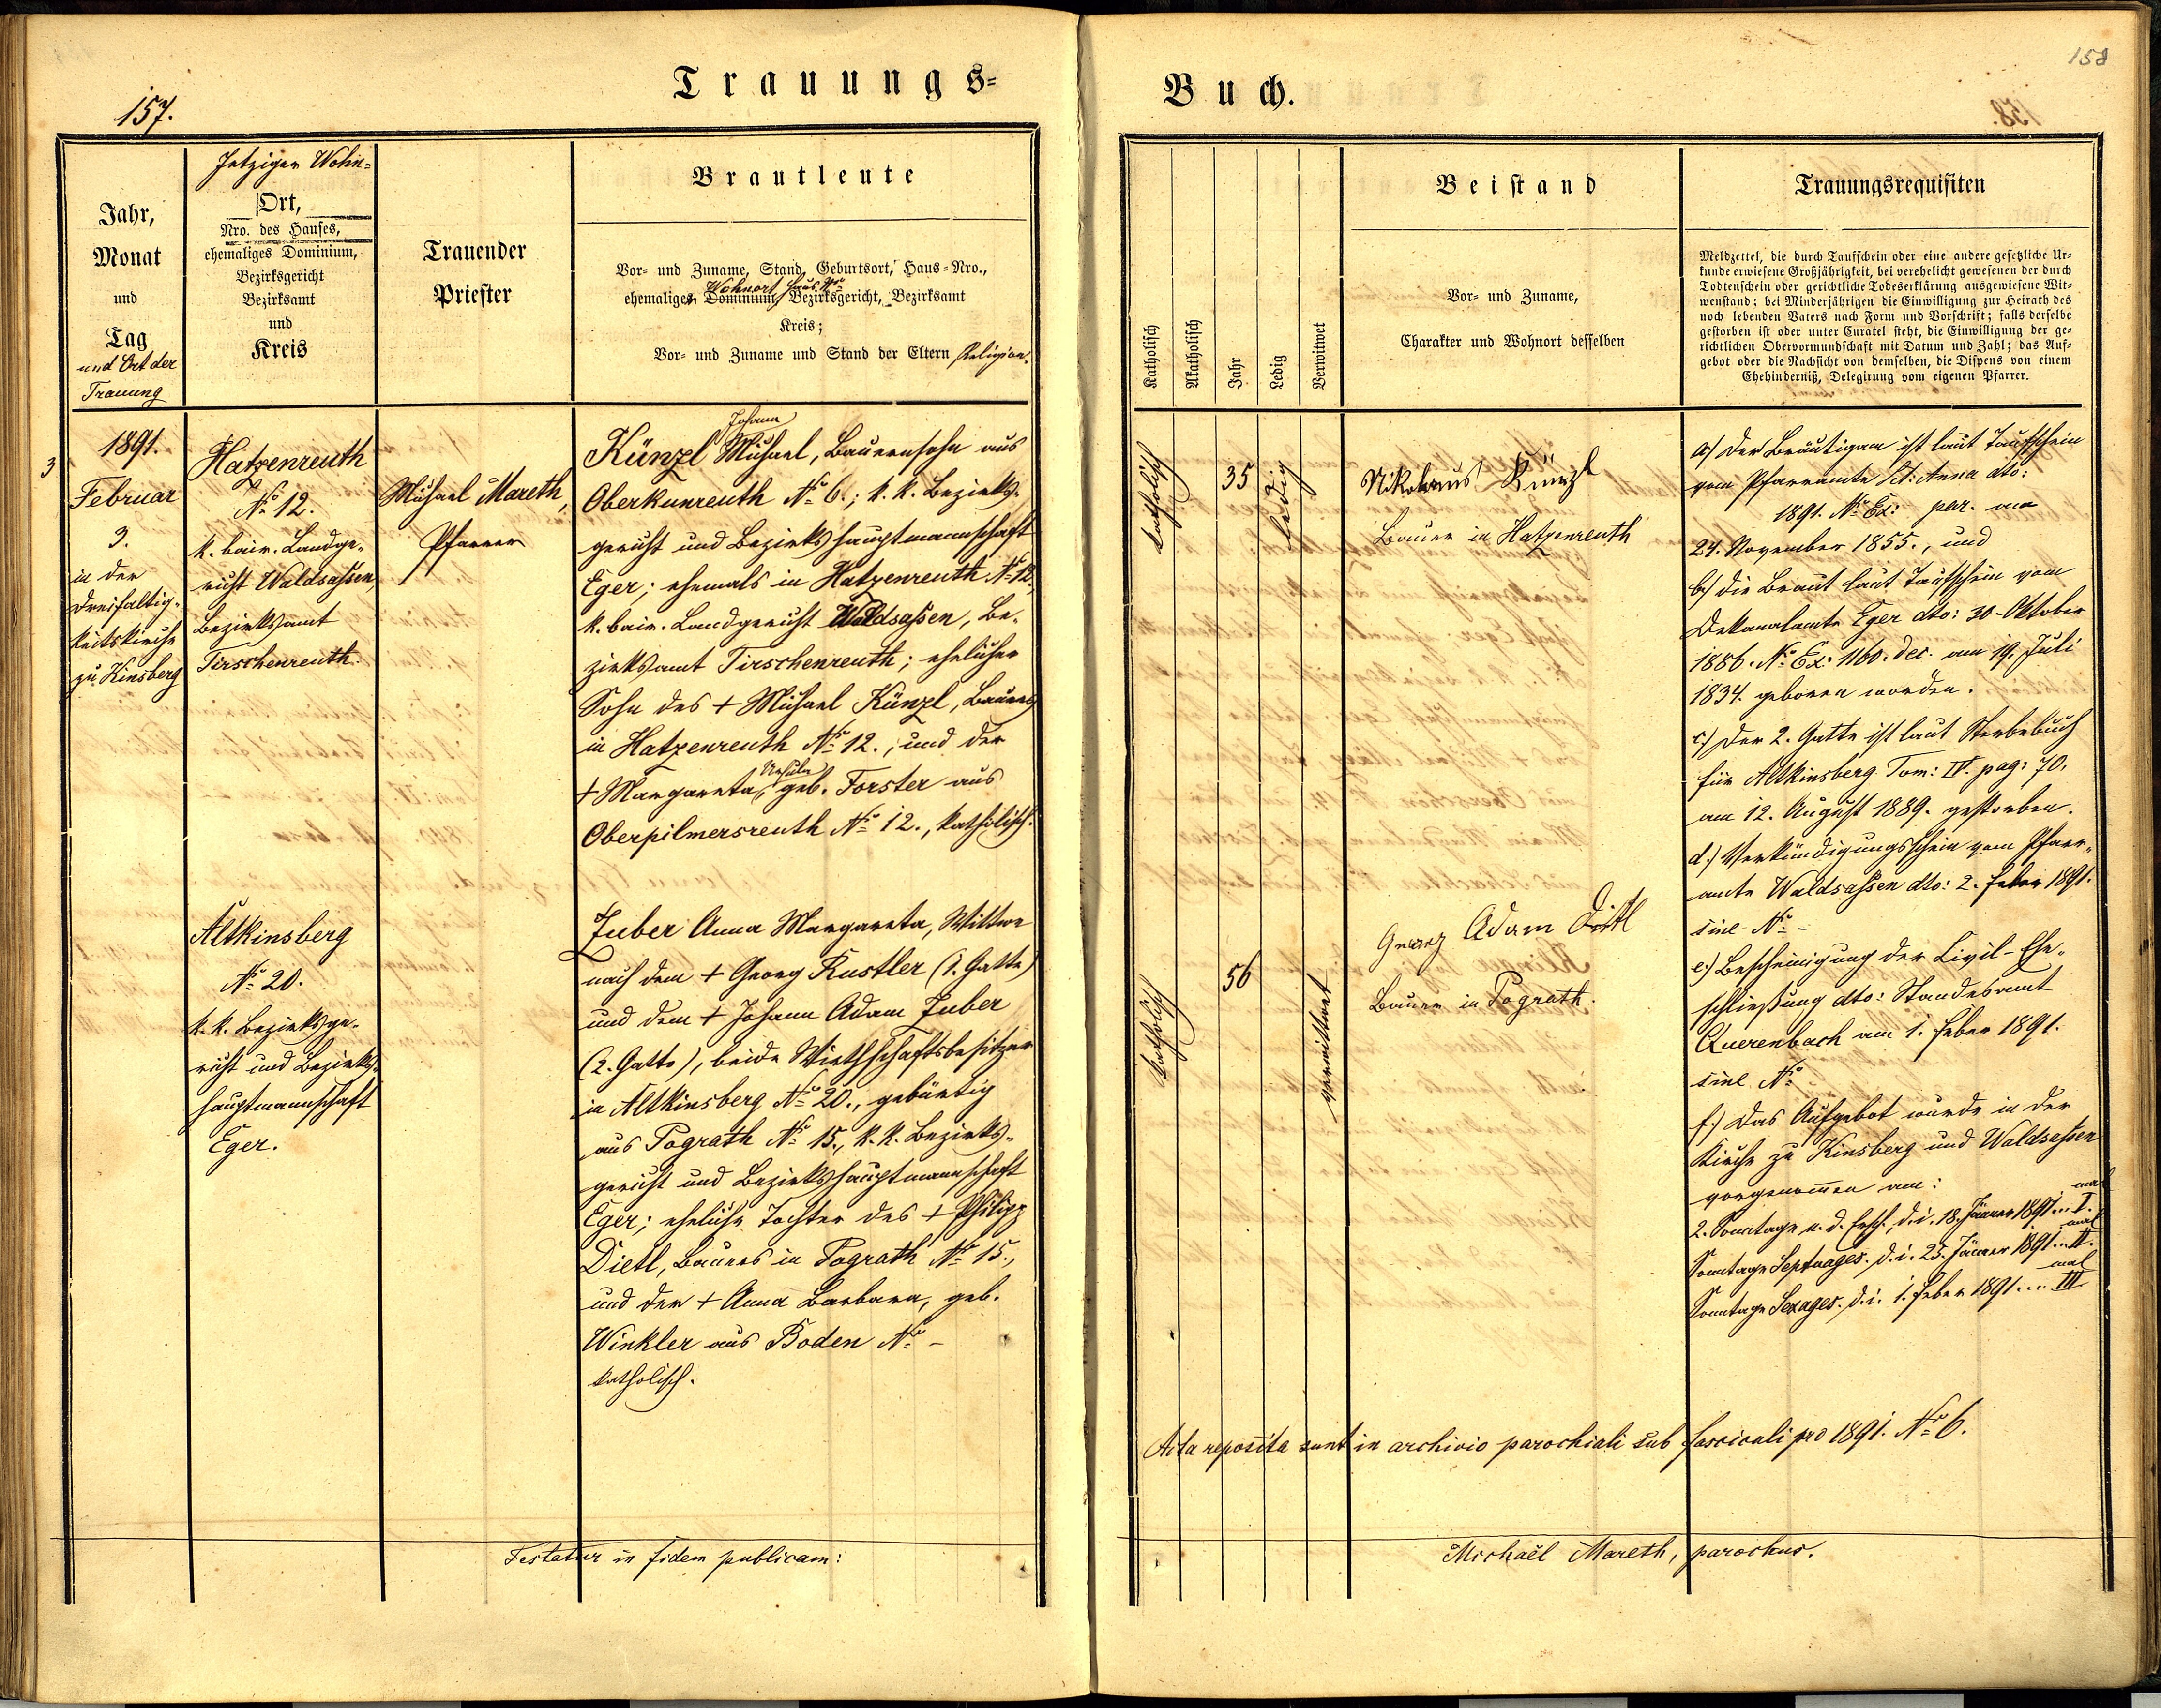 157.
Trauungs-
Jahr,
Monat
und
Tag
und Ort der
Trauung
Jetziger Wohn-
Ort,
Nro. des Hauses,
ehemaliges Dominium,
Bezirksgericht
Bezirksamt
und
Kreis
Trauender
Priester
Brautleute
Vor- und Zuname, Stand, Geburtsort, Haus-Nro.,
Wohnort Haus No
ehemaliges Dominium, Bezirksgericht, Bezirksamt
Kreis;
Vor- und Zuname und Stand der Eltern Religion.
3
1891.
Februar
3.
in der
Dreifaltig-
keitskirche
zu Kinsberg
Hatzenreuth
No 12.
k. bair. Landge-
richt Waldsassen,
Bezirksamt
Tirschenreuth.
Michael Mareth,
Pfarrer
Johann
Künzl Michael, Bauernsohn aus
Oberkunreuth No 6.; k. k. Bezirks-
gericht und Bezirkshauptmannschaft
Eger; ehemals in Hatzenreuth No 12,
k. bair. Landgericht Waldsassen, Be-
zirksamt Tirschenreuth; ehelicher
Sohn des + Michael Künzl, Bauers
in Hatzenreuth No 12.; und der
Ursula
+ Margareta, geb. Forster aus
Oberpilmersreuth No 12., katholisch.
Altkinsberg
No 20.
k. k. Bezirksge-
richt und Bezirks-
hauptmannschaft
Eger.
Zuber Anna Margareta, Wittwe
nach dem + Georg Rustler (1. Gatte)
und dem + Johann Adam Zuber
(2. Gatte), beide Wirthschaftsbesitzer
in Altkinsberg No 20., gebürtig
aus Pograth No 15., k. k. Bezirks-
gericht und Bezirkshauptmannschaft
Eger; eheliche Tochter des + Philipp
Dietl, Bauers in Pograth No 15.,
und der + Anna Barbara, geb.
Winkler aus Boden No -
katholisch.
Testatur in fidem publicam:
158
Buch.
Katholisch
Akatholisch
Jahr
Ledig
Verwitwet
Beistand
Vor- und Zuname,
Charakter und Wohnort desselben
Trauungsrequisiten
Meldzettel, die durch Taufschein oder eine andere gesetzliche Ur-
kunde erwiesene Großjährigkeit, bei verehelicht gewesenen der durch
Todtenschein oder gerichtliche Todeserklärung ausgewiesene Wit-
wenstand; bei Minderjährigen die Einwilligung zur Heirath des
noch lebenden Vaters nach Form und Vorschrift; falls derselbe
gestorben ist oder unter Curatel steht, die Einwilligung der ge-
richtlichen Obervormundschaft mit Datum und Zahl; das Auf-
gebot oder die Nachsicht von demselben, die Dispens von einem
Ehehinderniß, Delegirung vom eigenen Pfarrer.
katholisch
35
ledig
Nikolaus Künzl
Bauer in Hatzenreuth
katholisch
56
verwittwet
Georg Adam Dietl
Bauer in Pograth.
a) Der Bräutigam ist laut Taufschein
vom Pfarramte St: Anna dto:
1891. No Ex: par. am
24. November 1855., und
b) Die Braut laut Taufschein vom
Dekanalamte Eger dto: 30. Oktober
1886. No Ex: 1160. dec. am 19. Juli
1834. geboren worden.
c.) Der 2. Gatte ist laut Sterbebuch
für Altkinsberg Tom: IV. pag: 70.
am 12. August 1889. gestorben.
d.) Verkündigungsschein vom Pfarr-
amte Waldsassen dto: 2. Feber 1891.
sine No -
e.) Bescheinigung der Civil-Ehe-
schließung dto: Standesamt
Querenbach am 1. Feber 1891.
sine No
f.) Das Aufgebot wurde in der
Kirche zu Kinsberg und Waldsassen
vorgenommen am:
2. Sonntage n. d. Ersch. d. i. 18. Jänner 1891 .. I. mal
Sonntage Septuages. d. i. 25. Jänner 1891 .. II. mal
Sonntage Sexages. d. i. 1. Feber 1891 .... III mal
Acta reposita sunt in archivio parochiali sub fasciculi pro 1891. No 6.
Michaël Mareth, parochus.